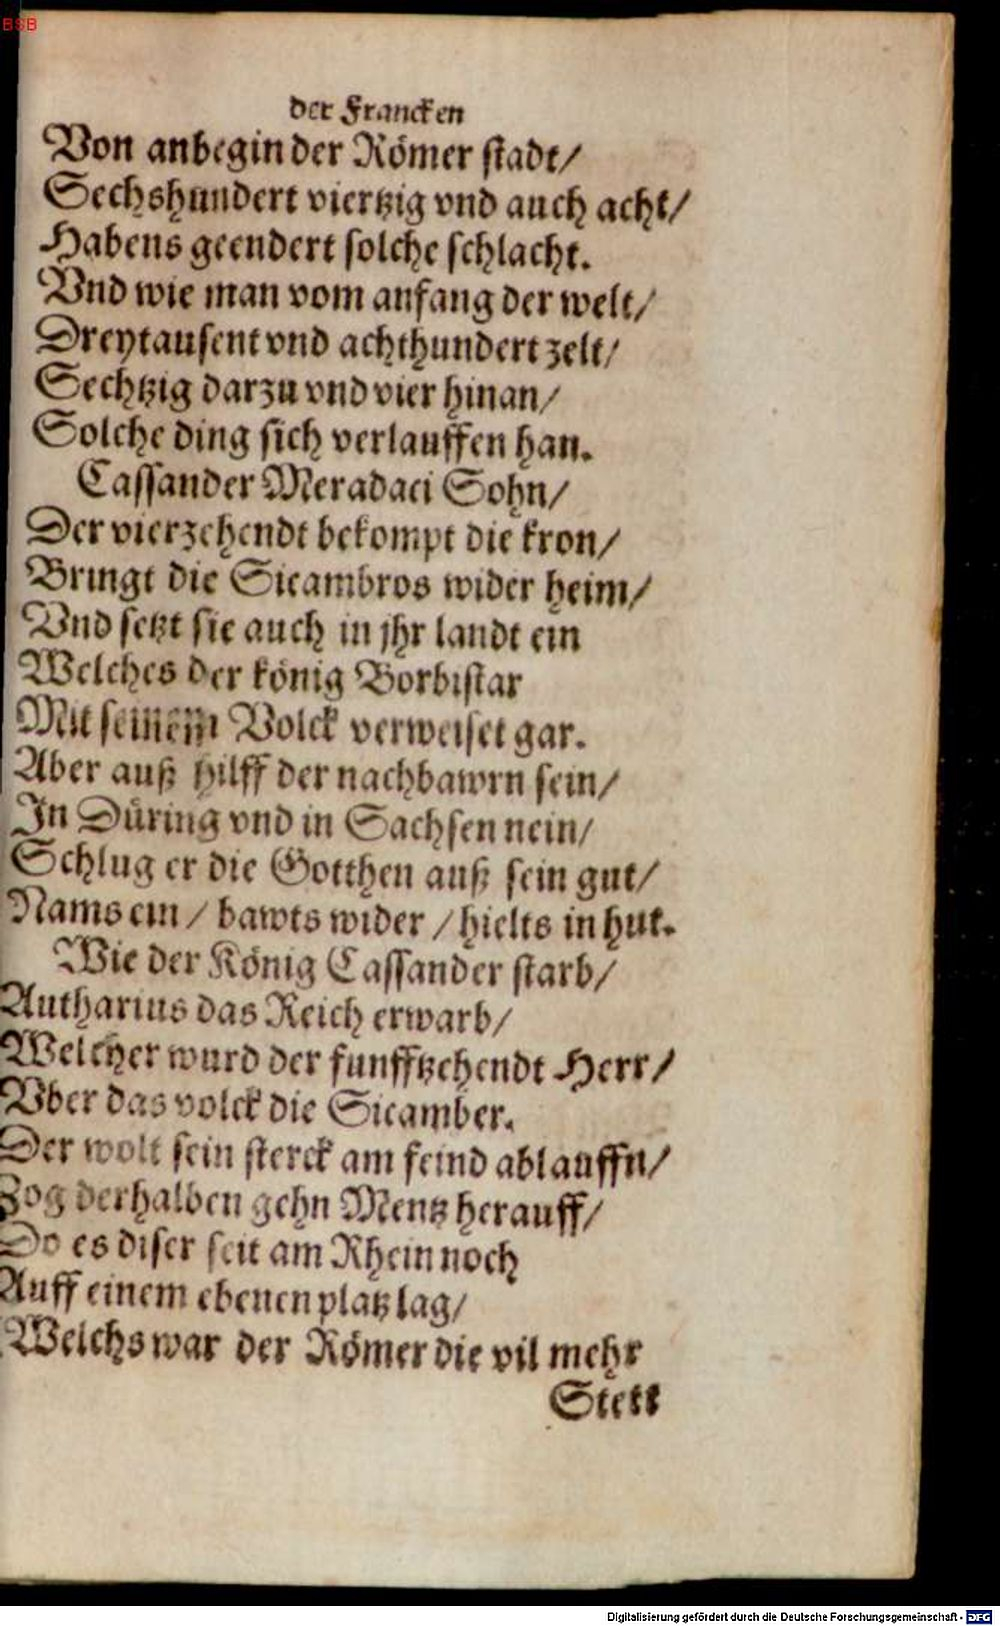 BSB
der Francken
Von anbegin der Römer stadt/
Sechshundert viertzig vnd auch acht/
Habens geendert solche schlacht.
Vnd wie man vom anfang der welt/
Dreytausent vnd achthundert zelt/
Sechtzig darzu vnd vier hinan/
Solche ding sich verlauffen han.
Cassander Meradaci Sohn/
Der vierzehendt bekompt die kron/
Bringt die Sicambros wider heim/
Vnd setzt sie auch in jhr landt ein
Welches der könig Borbistar
Mit seinem Volck verweiset gar.
Aber auß hilff der nachbawrn sein/
In Düring vnd in Sachsen nein/
Schlug er die Gotthen auß sein gut/
Nams ein / bawts wider / hielts in hut.
Wie der König Cassander starb/
Autharius das Reich erwarb/
Welcher wurd der funfftzehendt Herr/
Vber das volck die Sicamber.
Der wolt sein sterck am feind ablauffn/
Zog derhalben gehn Mentz herauff/
Do es diser seit am Rhein noch
Auff einem ebenen platz lag/
Welchs war der Römer die vil mehr
Stett
Digitalisierung gefördert durch die Deutsche Forschungsgemeinschaft - DFG